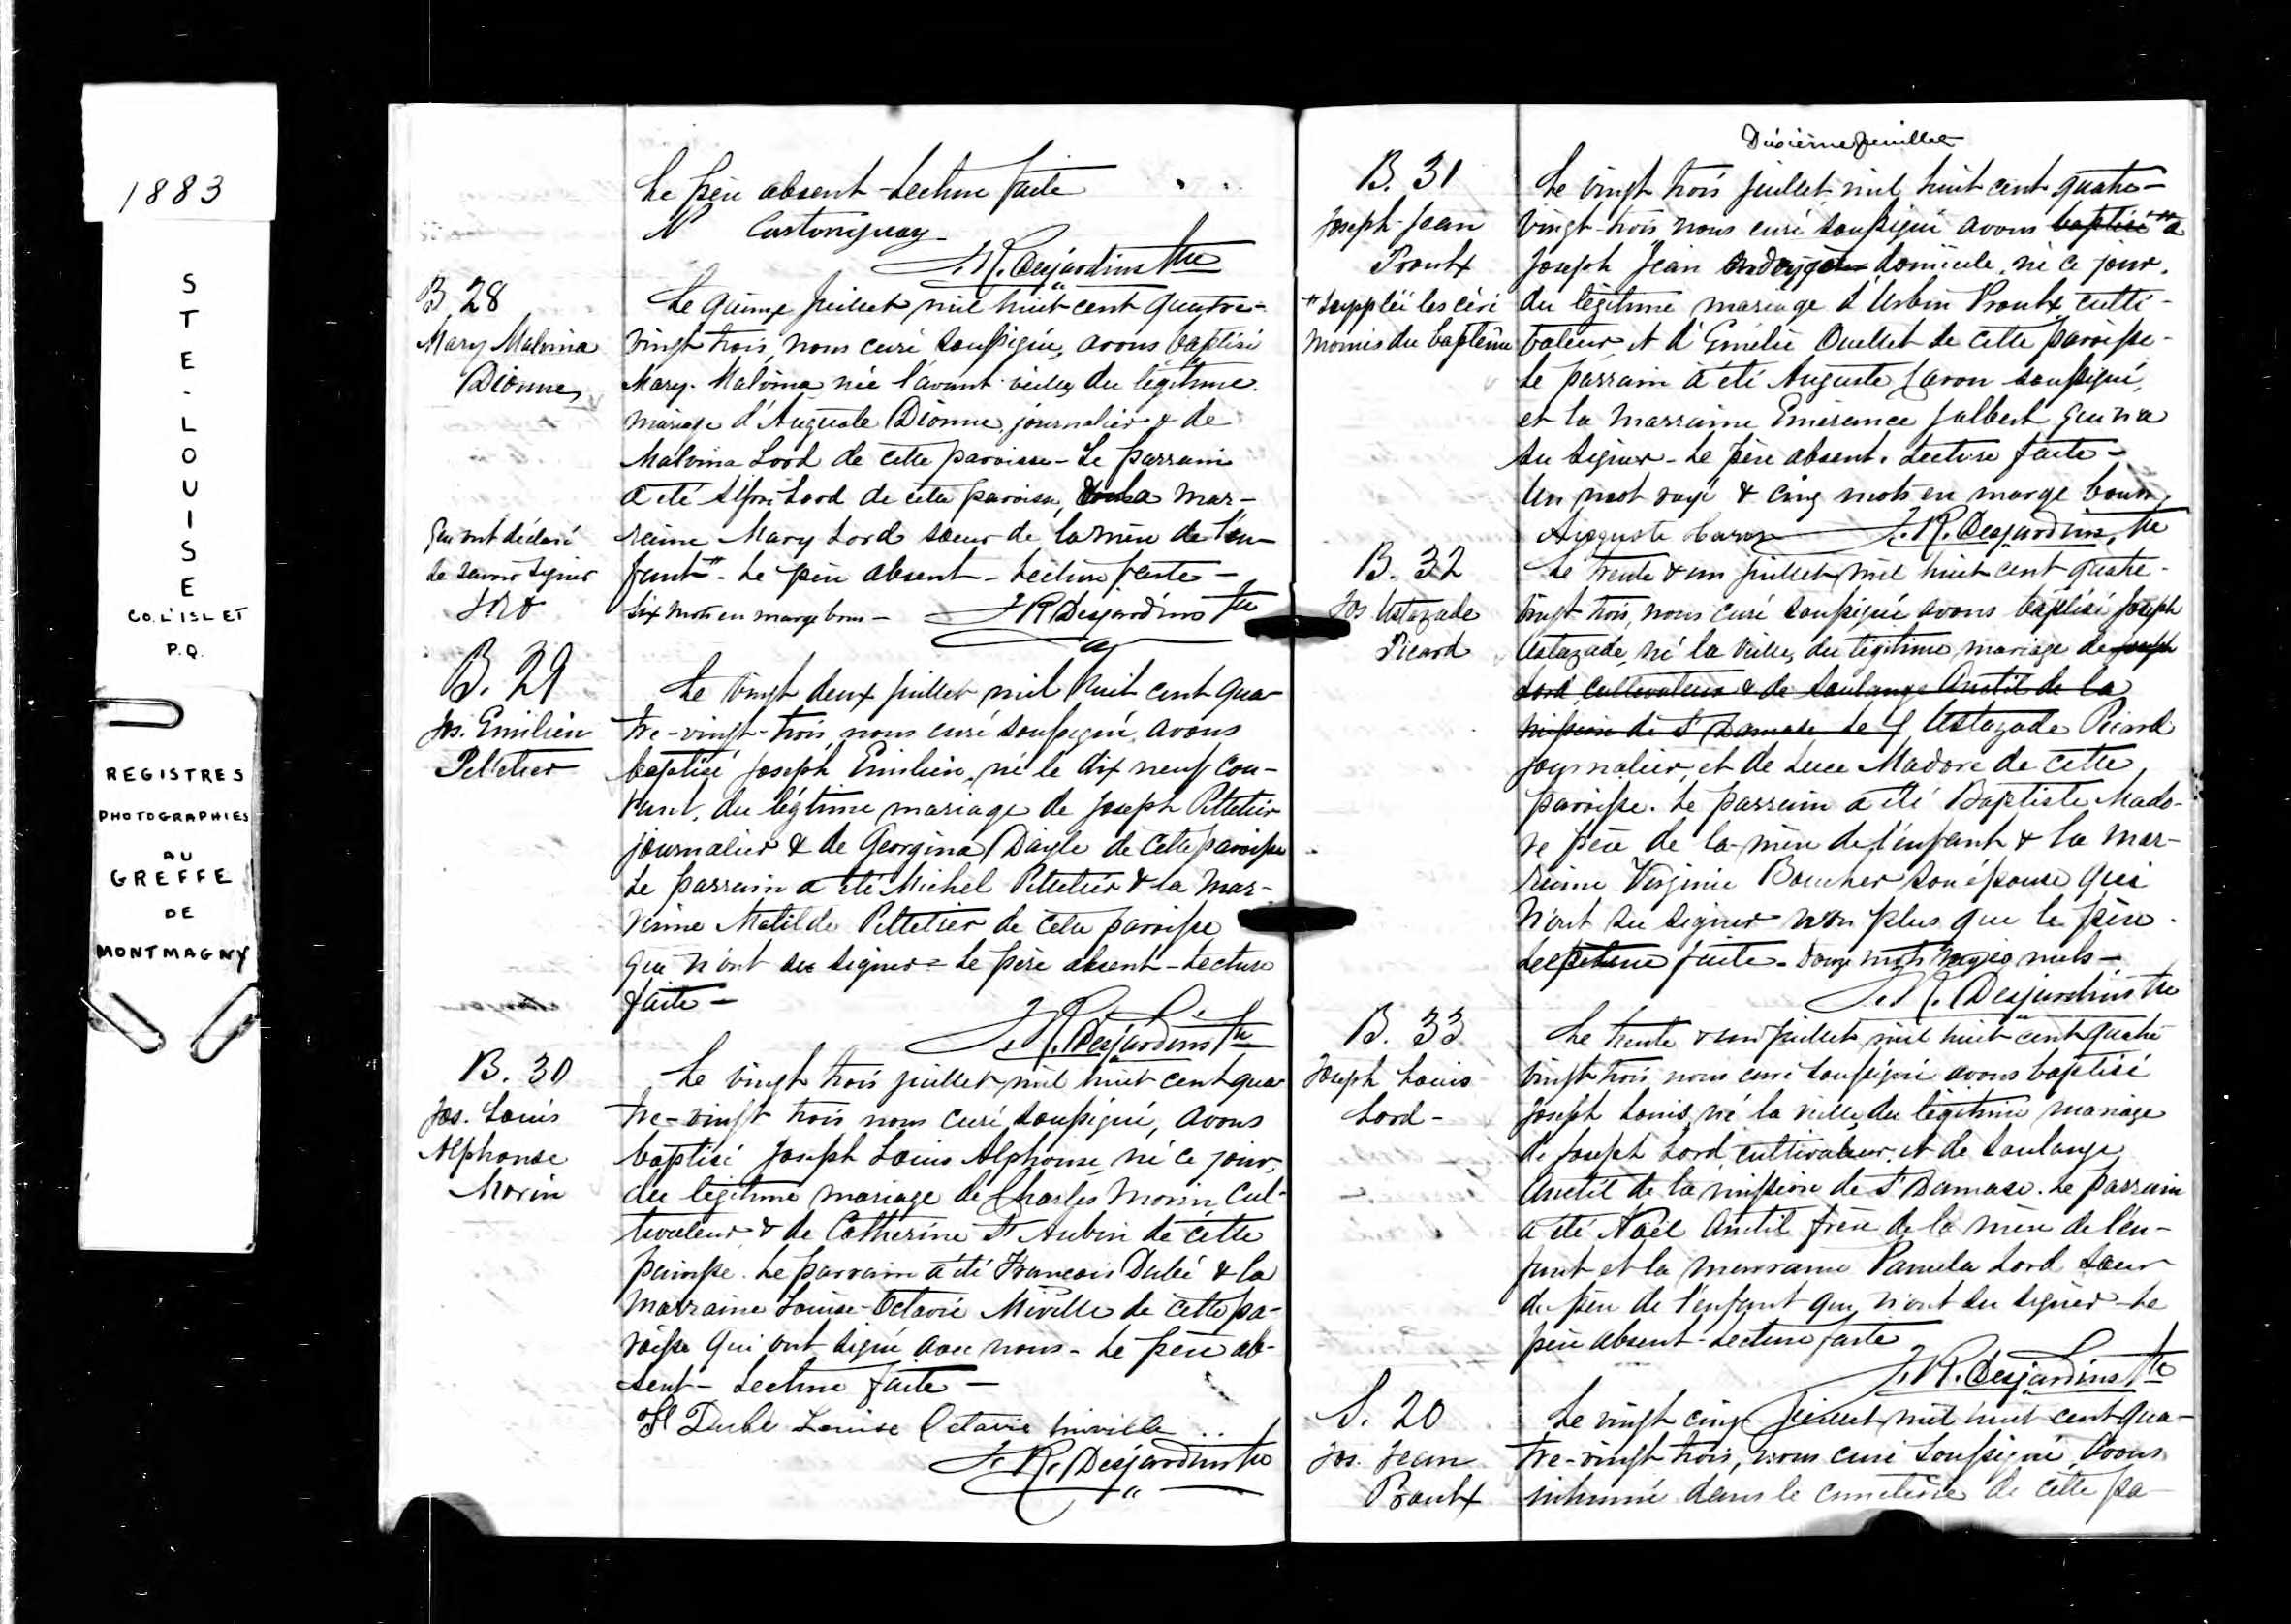 1883
STE-LOUISE
CO. L'ISLET
P.Q.
REGISTRES
PHOTOGRAPHIES
AU
GREFFE
DE
MONTMAGNY
Le père absent - Lecture faite
N Castonguay
J. R. Desjardins Ptre
B 28
Mary Malvina
Dionne
Le quinze juillet mil huit cent quatre-
vingt trois, nous curé soussigné, avons baptisé
Mary-Malvina née l'avant-veille, du légitime
mariage d'Auguste Dionne, journalier & de
Malvina Lord de cette paroisse - Le parrain
a été Lord de cette paroisse, la mar-
raine Mary Lord sœur de la mère de l'en-
fant". Le père absent - Lecture faite -
six mots en marge bons - J R Desjardins Ptre
Qui ont déclaré
ne savoir signer
JRD
B. 29
Jos. Emilien
Pelletier
Le vingt deux juillet mil huit cent qua-
tre-vingt-trois nous curé soussigné, avons
baptisé Joseph Emilien, né le dix neuf cou-
rant, du légitime mariage de Joseph Pelletier
journalier & de Georgina Daigle de cette paroisse
Le parrain a été Michel Pelletier & la mar-
raine Matilde Pelletier de cette paroisse
qui n'ont su signer - Le père absent - Lecture
faite -
J. R. Desjardins Ptre
B. 30
Jos. Louis
Alphonse
Morin
Le vingt trois juillet mil huit cent qua
tre-vingt trois nous curé soussigné, avons
baptisé Joseph Louis Alphonse, né ce jour,
du légitime mariage de Charles Morin, cul-
tivateur & de Catherine St Aubin de cette
paroisse. Le parrain a été François Dubé & la
marraine Louise-Octavie Miville de cette pa-
roisse qui ont signé avec nous - Le père ab-
sent - Lecture faite -
Fs Dubé Louise Octavie Miville
J. R. Desjardins Ptre
Dixième feuillet
B. 31
Joseph-Jean
Proulx
"Suppléé les céré
monies du baptême
Le vingt trois juillet mil huit cent quatre-
vingt-trois nous curé soussigné avons baptisé "
Joseph Jean ondoyé à domicile, né ce jour,
du légitime mariage d'Urbin Proulx culti-
vateur, et d'Emélie Ouellet de cette paroisse-
Le parrain a été Auguste Caron soussigné,
et la marraine Emérence Jalbert qui n'a
su signer - Le père absent. Lecture faite -
Un mot rayé & cinq mots en marge bons
Auguste Caron J. R. Desjardins, Ptre
B. 32
Jos Ustazade
Picard
Le trente & un juillet mil huit cent quatre-
vingt trois, nous curé soussigné avons baptisé Joseph
Ustazade, né la veille, du légitime mariage de Joseph
Lord, cultivateur & de Soulange Anctil de la
mission de St Damase. Le Ustazade Picard
journalier, et de Luce Madore de cette
paroisse. Le parrain a été Baptiste Mado-
re père de la mère de l'enfant & la mar-
raine Virginie Boucher son épouse qui
n'ont su signer non plus que le père.
Lecture faite - Douze mots rayés nuls -
J. R. Desjardins Ptre
B. 33
Joseph Louis
Lord -
Le trente & un juillet mil huit cent quatre
vingt trois nous curé soussigné avons baptisé
Joseph Louis, né la veille, du légitime mariage
de Joseph Lord, cultivateur, et de Soulange
Anctil de la mission de St Damase. Le parrain
a été Noël Anctil frère de la mère de l'en-
fant et la marraine Pamela Lord sœur
du père de l'enfant qui n'ont su signer - Le
père absent - Lecture faite
J. R. Desjardins Ptre
S. 20
Jos. Jean
Proulx
Le vingt cinq juillet mil huit cent qua-
tre-vingt trois, nous curé soussigné, avons
inhumé dans le cimetière de cette pa-